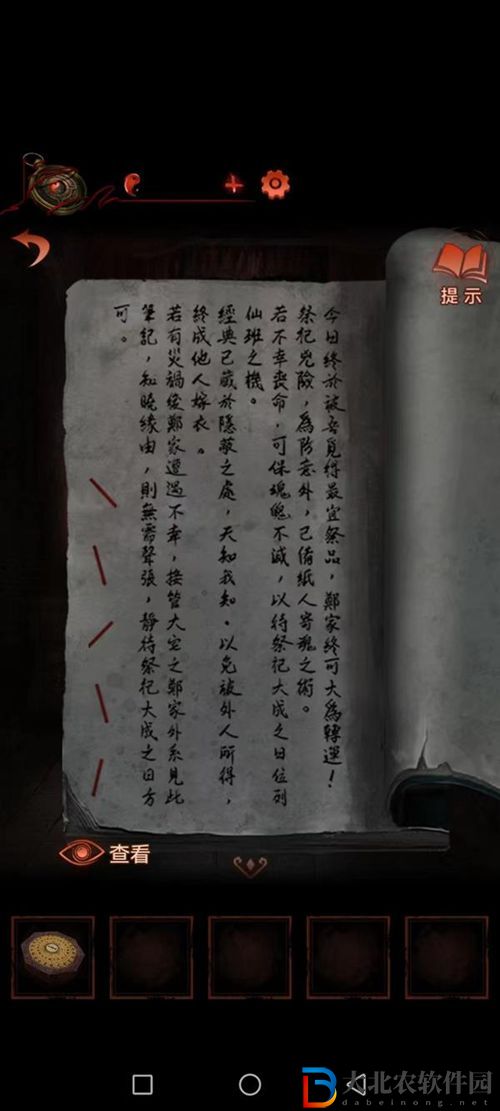 提示
今日終於被吾覓得最宜祭品，鄭家終可大為轉運！
祭祀兇險，為防意外，已備紙人寄魂之術。
若不幸喪命，可保魂魄不滅，以待祭祀大成之日位列
仙班之機。
經典已藏於隱蔽之處，天知我知。以免被外人所得，
終成他人嫁衣。
若有災禍後鄭家遭遇不幸，接管大宅之鄭家外系見此
筆記，知曉緣由，則無需聲張，靜待祭祀大成之日方
可。
查看
大北农软件园
dabeinong.net